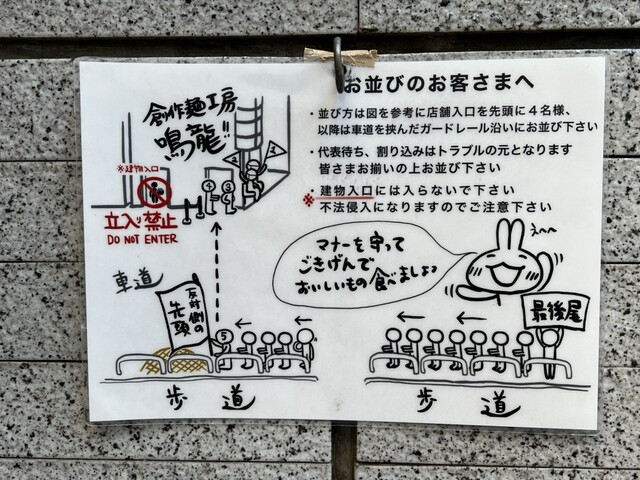 お並びのお客さまへ
・並び方は図を参考に店舗入口を先頭に４名様、
以降は車道を挟んだガードレール沿いにお並び下さい
・代表待ち、割り込みはトラブルの元となります
皆さまお揃いの上お並び下さい
・建物入口には入らないで下さい
※不法侵入になりますのでご注意下さい
創作麺工房
鳴龍!!
※建物入口
立入り禁止
DO NOT ENTER
1
2
4
3
マナーを守って
ごきげんで
おいしいもの食べましょう
え〜〜
車道
反対側の
先頭
5
最後尾
歩道
歩道